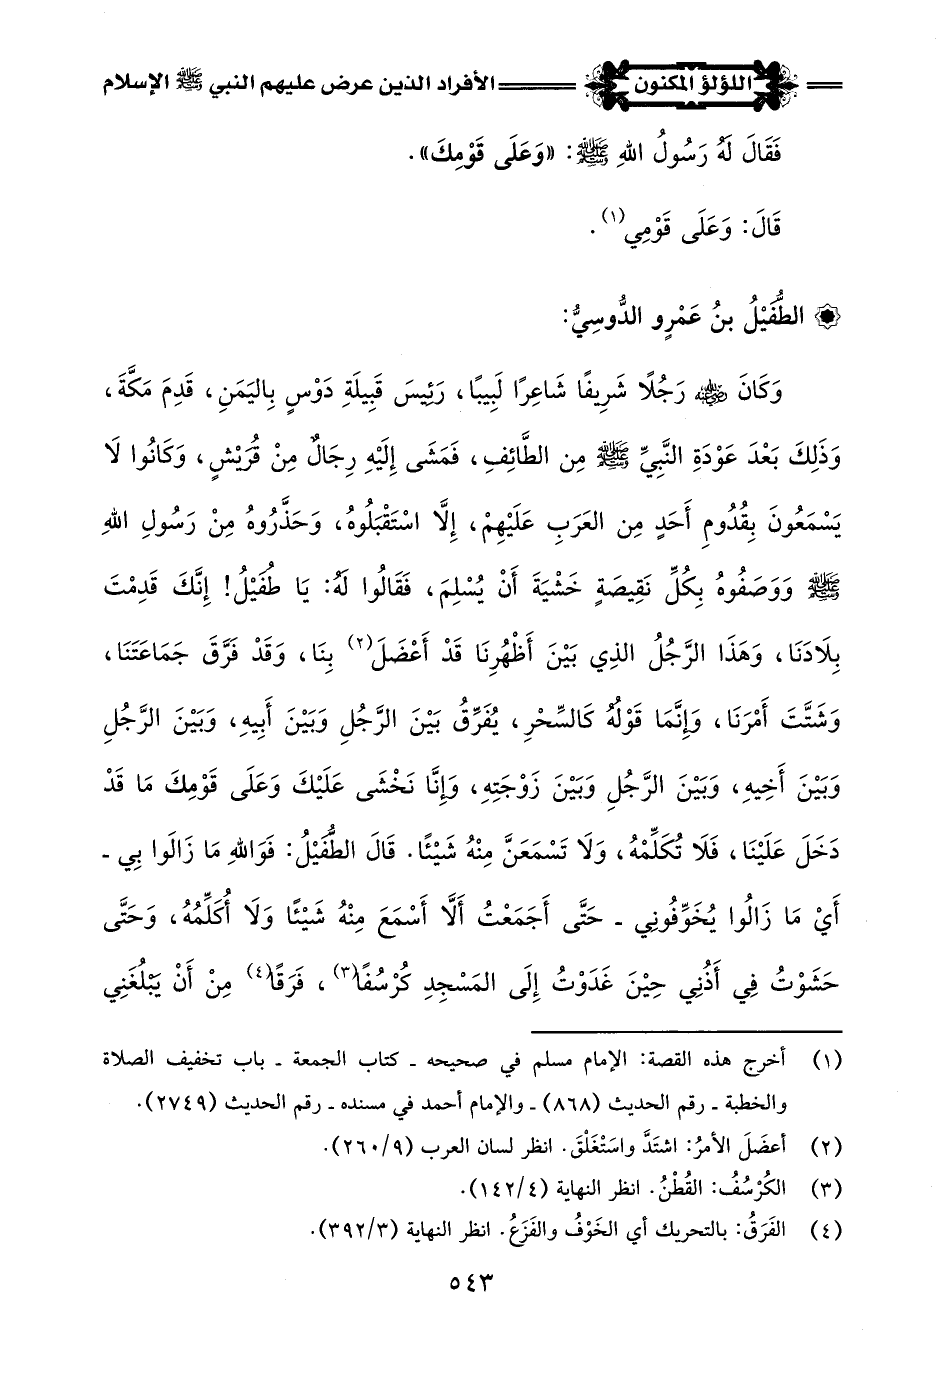 اللؤلؤ المكنون الأفراد الذين عرض عليهم النبي ﷺ الإسلام
فَقَالَ لَهُ رَسُولُ اللهِ ﷺ: «وَعَلَى قَوْمِكَ».
قَالَ: وَعَلَى قَوْمِي(١).
الطُّفَيْلُ بنُ عَمْرٍو الدُّوسِيُّ:
وَكَانَ رضي الله عنه رَجُلًا شَرِيفًا شَاعِرًا لَبِيبًا، رَئِيسَ قَبِيلَةِ دَوْسٍ بِاليَمَنِ، قَدِمَ مَكَّةَ،
وَذَلِكَ بَعْدَ عَوْدَةِ النَّبِيِّ ﷺ مِنِ الطَّائِفِ، فَمَشَى إِلَيْهِ رِجَالٌ مِنْ قُرَيْشٍ، وَكَانُوا لَا
يَسْمَعُونَ بِقُدُومِ أَحَدٍ مِنِ العَرَبِ عَلَيْهِمْ، إِلَّا اسْتَقْبَلُوهُ، وَحَذَّرُوهُ مِنْ رَسُولِ اللهِ
ﷺ وَوَصَفُوهُ بِكُلِّ نَقِيصَةٍ خَشْيَةَ أَنْ يُسْلِمَ، فَقَالُوا لَهُ: يَا طُفَيْلُ! إِنَّكَ قَدِمْتَ
بِلَادَنَا، وَهَذَا الرَّجُلُ الذِي بَيْنَ أَظْهُرِنَا قَدْ أَعْضَلَ(٢) بِنَا، وَقَدْ فَرَّقَ جَمَاعَتَنَا،
وَشَتَّتَ أَمْرَنَا، وَإِنَّمَا قَوْلُهُ كَالسِّحْرِ، يُفَرِّقُ بَيْنَ الرَّجُلِ وَبَيْنَ أَبِيهِ، وَبَيْنَ الرَّجُلِ
وَبَيْنَ أَخِيهِ، وَبَيْنَ الرَّجُلِ وَبَيْنَ زَوْجَتِهِ، وَإِنَّا نَخْشَى عَلَيْكَ وَعَلَى قَوْمِكَ مَا قَدْ
دَخَلَ عَلَيْنَا، فَلَا تُكَلِّمْهُ، وَلَا تَسْمَعَنَّ مِنْهُ شَيْئًا. قَالَ الطُّفَيْلُ: فَوَاللهِ مَا زَالَوا بِي ـ
أَيْ مَا زَالُوا يُخَوِّفُونِي ـ حَتَّى أَجْمَعْتُ أَلَّا أَسْمَعَ مِنْهُ شَيْئًا وَلَا أُكَلِّمُهُ، وَحَتَّى
حَشَوْتُ فِي أُذُنِي حِيْنَ غَدَوْتُ إِلَى المَسْجِدِ كُرْسُفًا(٣)، فَرَقًا(٤) مِنْ أَنْ يَبْلُغَنِي
(١) أخرج هذه القصة: الإمام مسلم في صحيحه ـ كتاب الجمعة ـ باب تخفيف الصلاة
والخطبة ـ رقم الحديث (٨٦٨) ـ والإمام أحمد في مسنده ـ رقم الحديث (٢٧٤٩).
(٢) أعضَلَ الأمرُ: اشتَدَّ واسْتَغْلَقَ. انظر لسان العرب (٢٦٠/٩).
(٣) الكُرْسُفُ: القُطْنُ. انظر النهاية (١٤٢/٤).
(٤) الفَرَقُ: بالتحريك أي الخَوْفُ والفَزَعُ. انظر النهاية (٣٩٢/٣).
٥٤٣